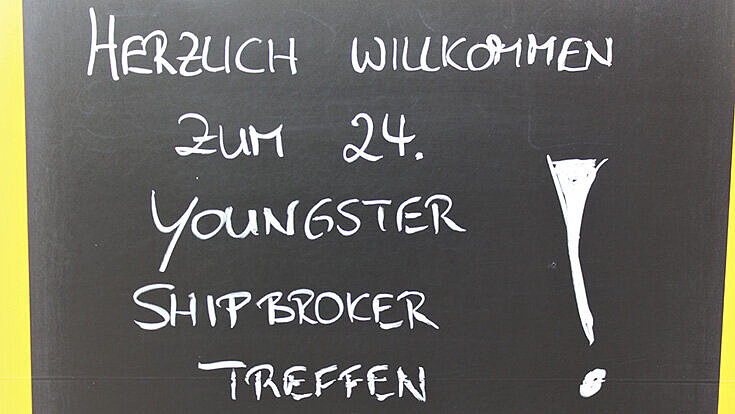 HERZLICH WILLKOMMEN
ZUM 24.
YOUNGSTER
SHIPBROKER
TREFFEN !